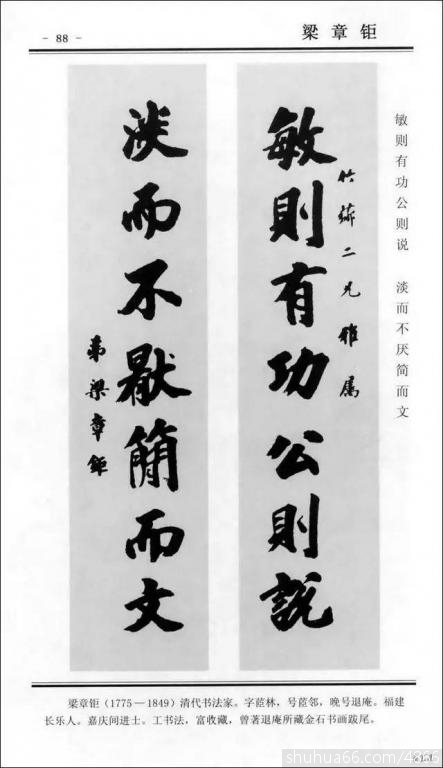 - 88 -
梁章钜
敏则有功公则说　淡而不厌简而文
敏則有功公則説
竹
二兄雅属
淡而不厭簡而文
弟梁章鉅
梁章钜(1775—1849)清代书法家。字茝林，号茝邻，晚号退庵。福建
长乐人。嘉庆间进士。工书法，富收藏，曾著退庵所藏金石书画跋尾。
shuhua66.com/4866